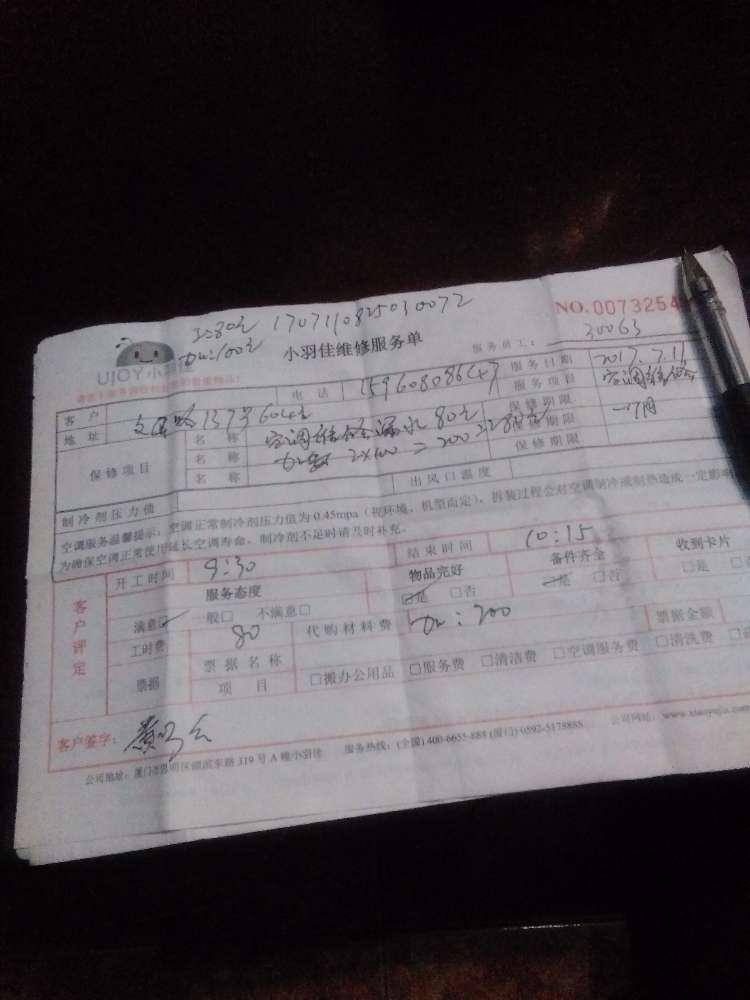 工:80元 1707110825010072
加:100元
NO.0073254
UJOY小羽佳
小羽佳维修服务单
服务员工: 30063
客户 电话 服务日期 2017.7.11
地址 服务项目 空调维修
保修项目 名称 空调维修漏水 80元 保修期限 一个月
名称 2×100=200 保修期限
名称 保修期限
制冷剂压力值 出风口温度
空调服务温馨提示:空调正常制冷剂压力值为0.45mpa(视环境、机型而定),拆装过程会对空调制冷或制热造成一定影响
为确保空调正常使用延长空调寿命,制冷剂不足时请及时补充。
客户评定
开工时间 9:30 结束时间 10:15
服务态度 物品完好 备件齐全 收到卡片
满意☑ 一般□ 不满意□ ☑是 □否 ☑是 □否 □是
工时费 80 代购材料费 加:200 票据金额
票据 票据名称 □搬办公用品 □服务费 □清洁费 □空调服务费 □清洗费
项目
客户签字:
公司地址:厦门市思明区湖滨东路319号A幢小羽佳 服务热线:(全国)400-6655-888 (厦门)0592-5178888 公司网站:www.xiaoyujia.com